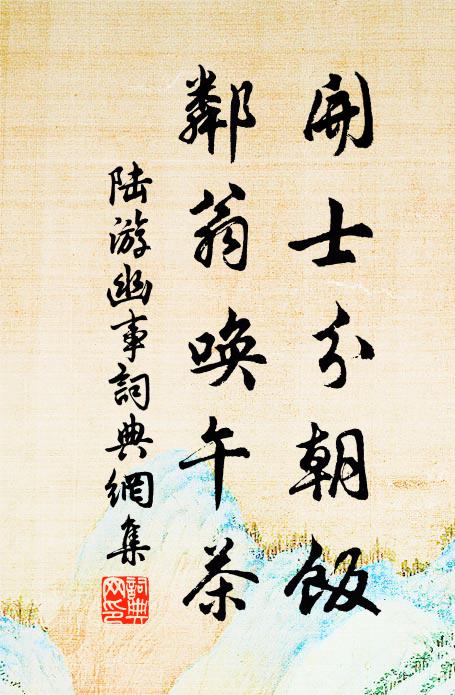 開士分朝飯
鄰翁喚午茶
陸游幽事詞典網集
詞典網印